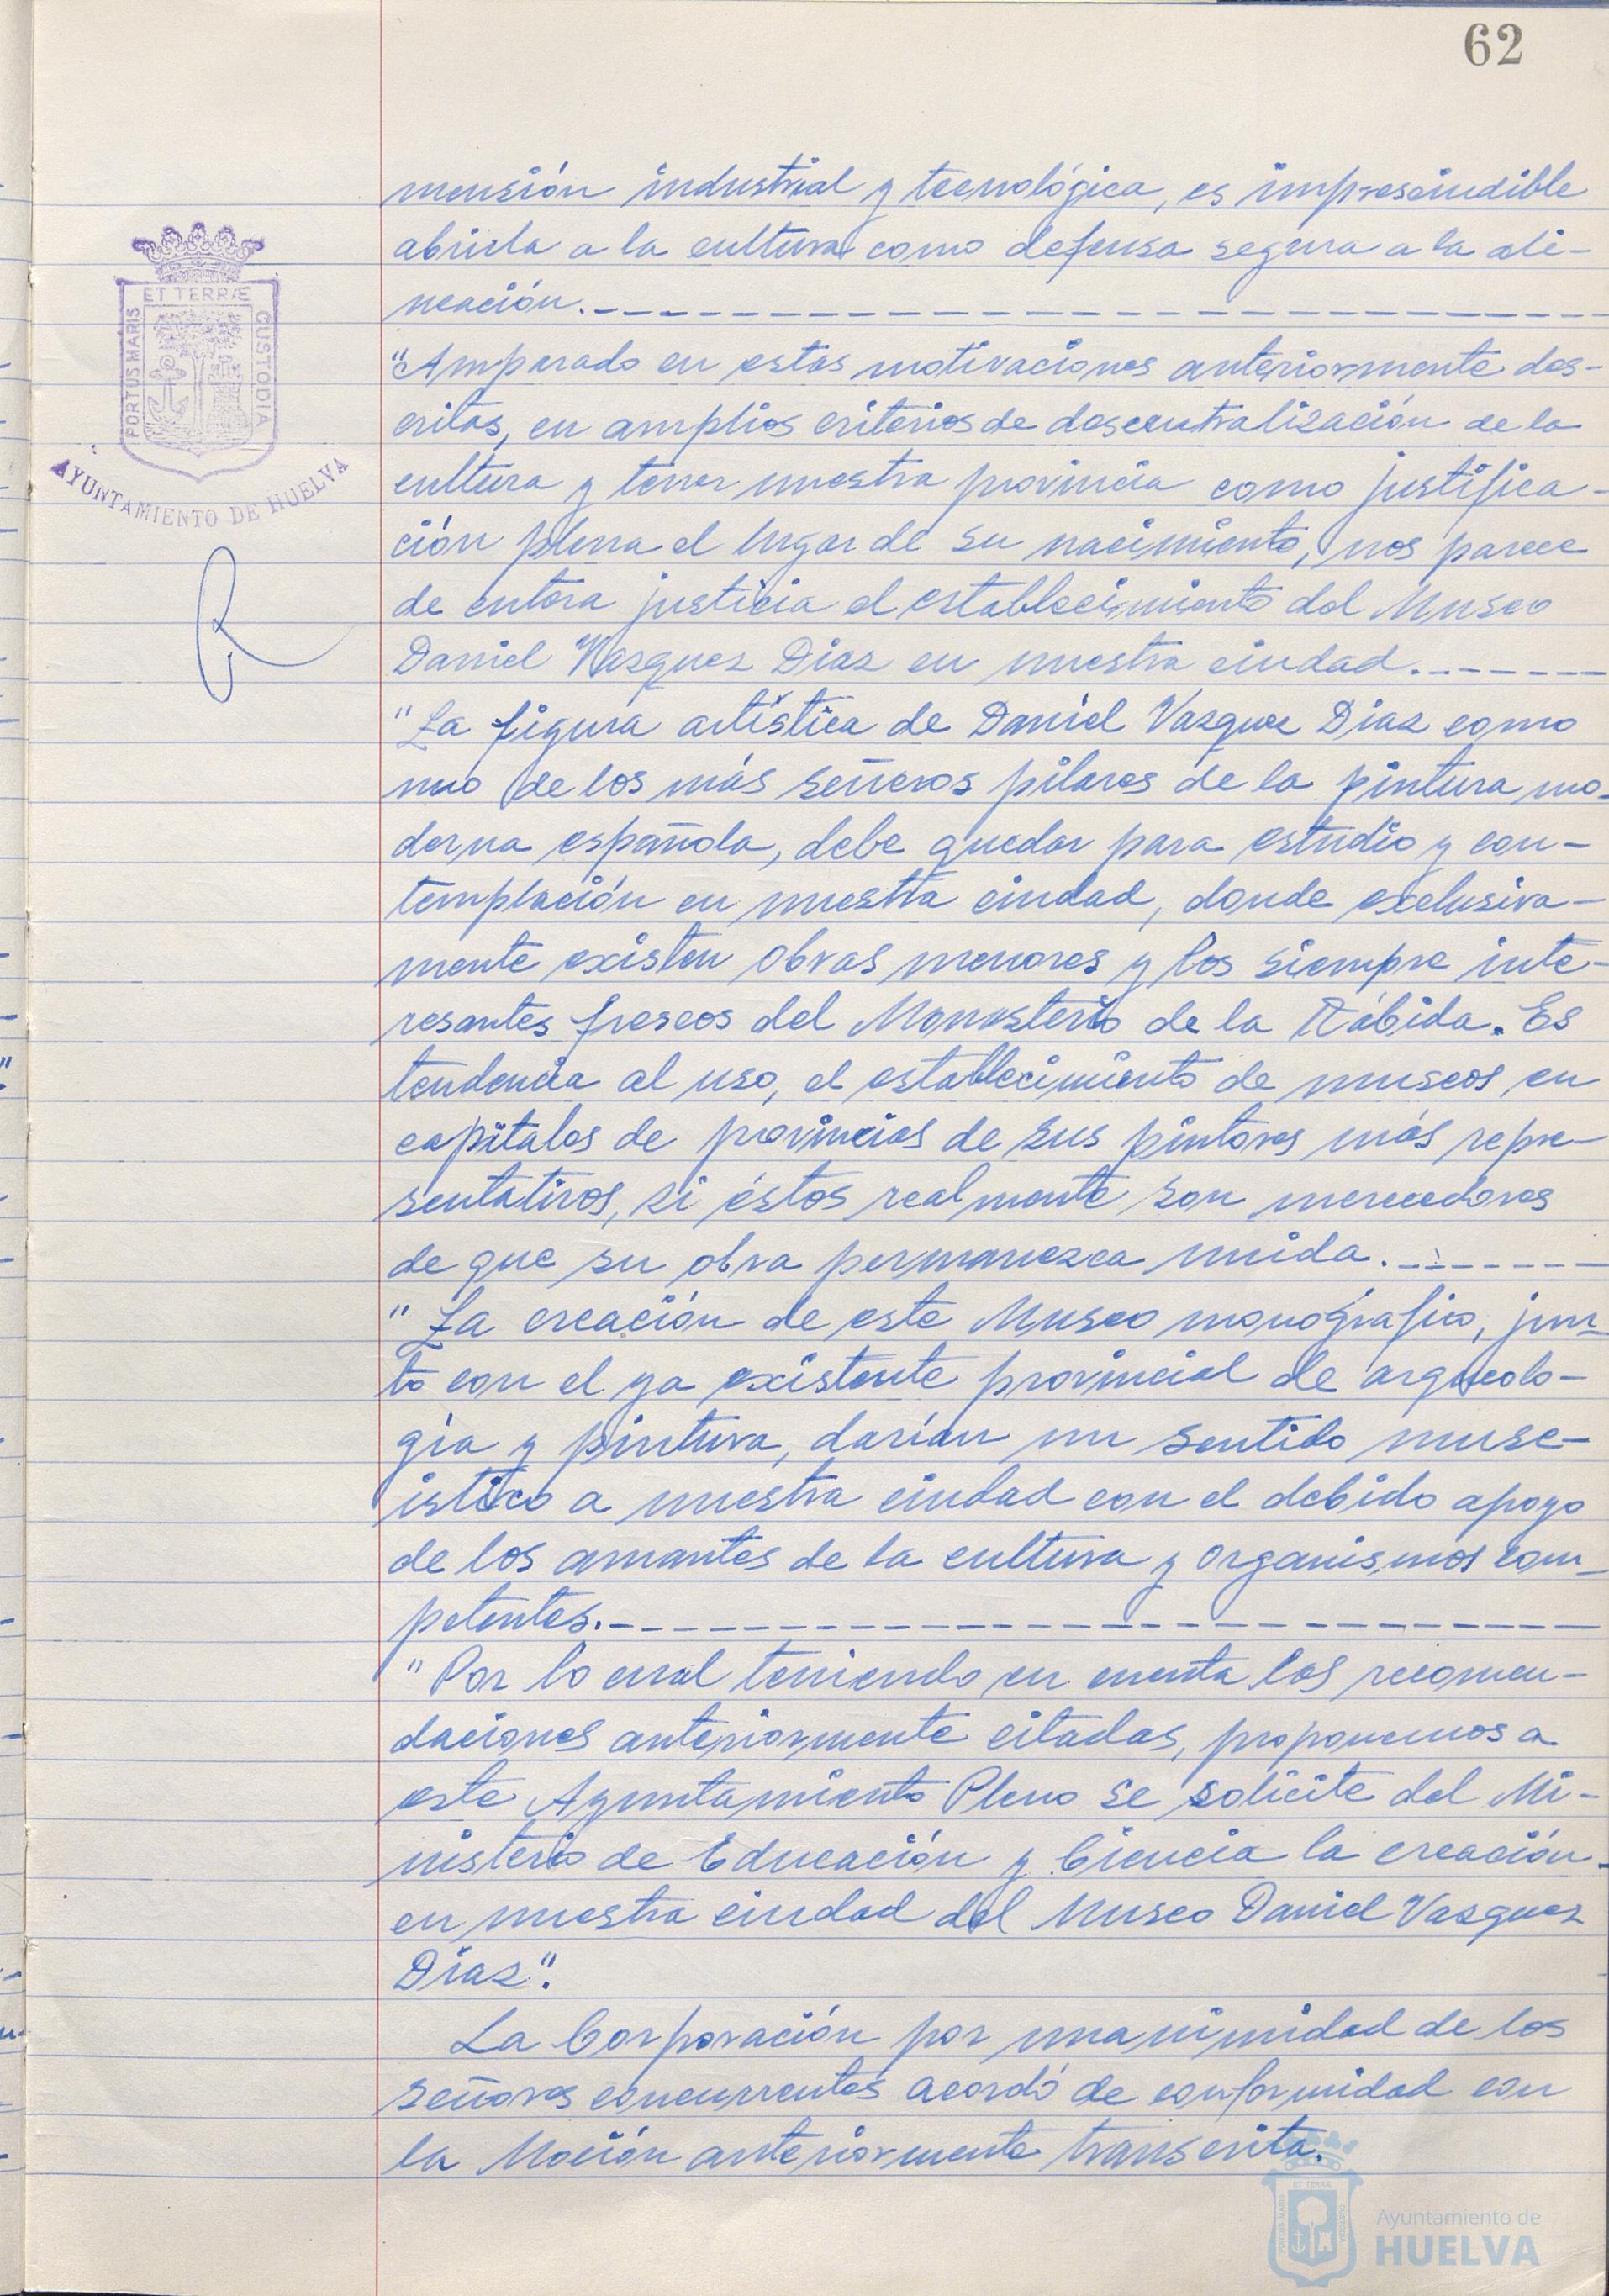 62
mensión industrial y tecnológica, es imprescindible
abrirla a la cultura como defensa segura a la ali-
neación.
"Amparado en estas motivaciones anteriormente des-
critas, en amplios criterios de descentralización de la
cultura y tener nuestra provincia como justifica-
ción plena el lugar de su nacimiento, nos parece
de entera justicia el establecimiento del Museo
Daniel Vazquez Diaz en nuestra ciudad.
"La figura artística de Daniel Vazquez Diaz como
uno de los más señeros pilares de la pintura mo-
derna española, debe quedar para estudio y con-
templación en nuestra ciudad, donde exclusiva-
mente existen obras menores y los siempre inte-
resantes frescos del Monasterio de la Rábida. Es
tendencia al uso, el establecimiento de museos en
capitales de provincias de sus pintores más repre-
sentativos, si éstos realmente son merecedores
de que su obra permanezca unida.
"La creación de este Museo monográfico, jun-
to con el ya existente provincial de arqueolo-
gía y pintura, darían un sentido muse-
ístico a nuestra ciudad con el debido apoyo
de los amantes de la cultura y organismos com-
petentes.
"Por lo cual teniendo en cuenta las recomen-
daciones anteriormente citadas, proponemos a
este Ayuntamiento Pleno se solicite del Mi-
nisterio de Educación y Ciencia la creación
en nuestra ciudad del Museo Daniel Vazquez
Diaz".
La Corporación por unanimidad de los
señores concurrentes acordó de conformidad con
la Moción anteriormente transcrita.
PORTUS MARIS
ET TERRÆ
CUSTODIA
AYUNTAMIENTO DE HUELVA
Ayuntamiento de
HUELVA